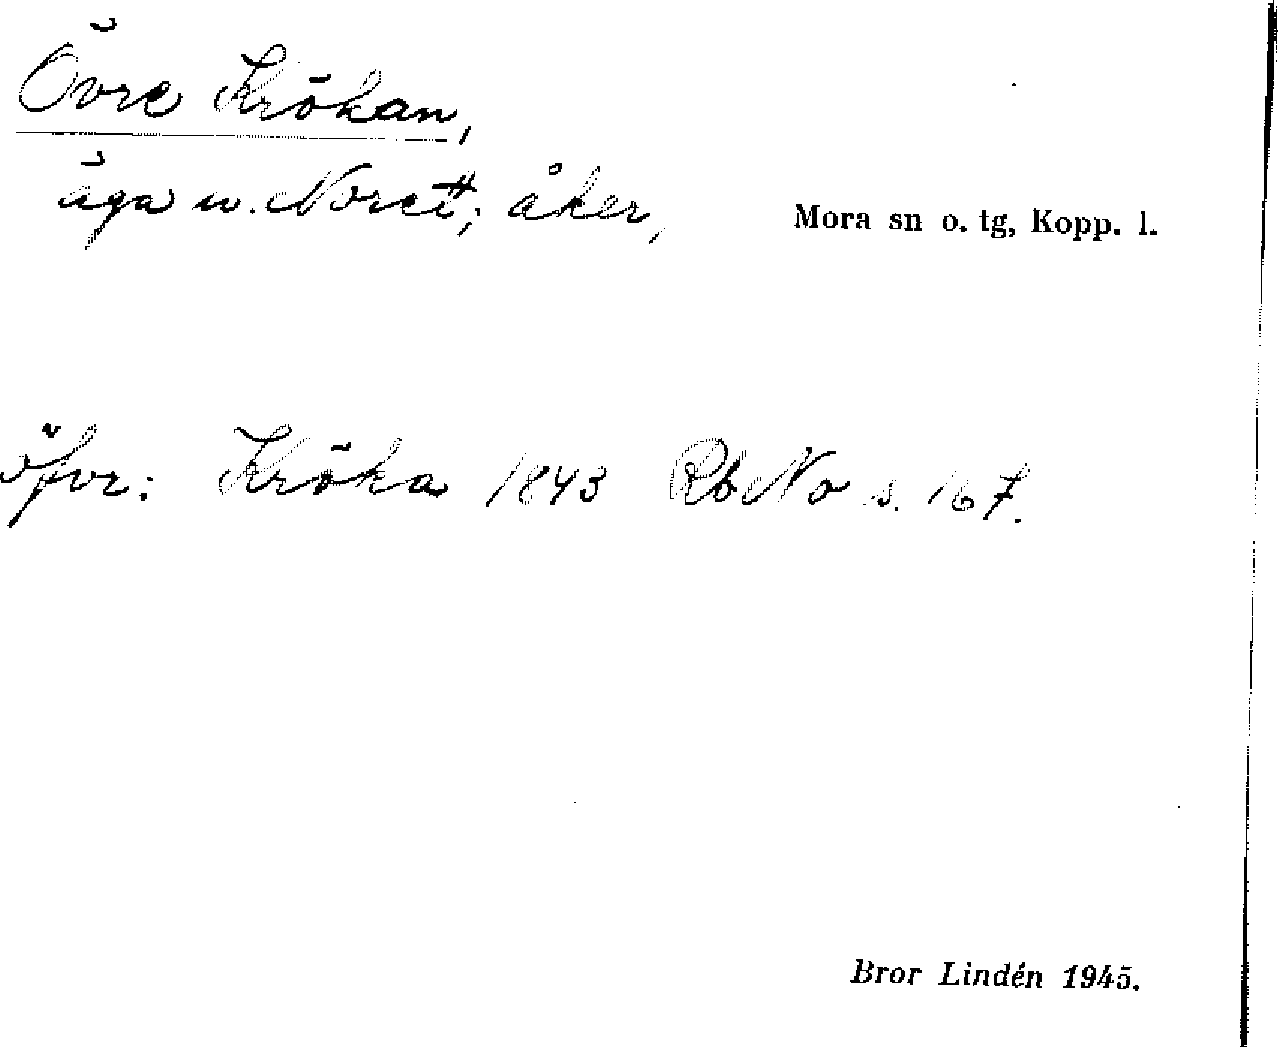 Övre Krökan,
äga u. Noret; åker,
Mora sn o. tg, Kopp. l.
öfvr: Kröka 1843 Rb No s. 167.
Bror Lindén 1945.